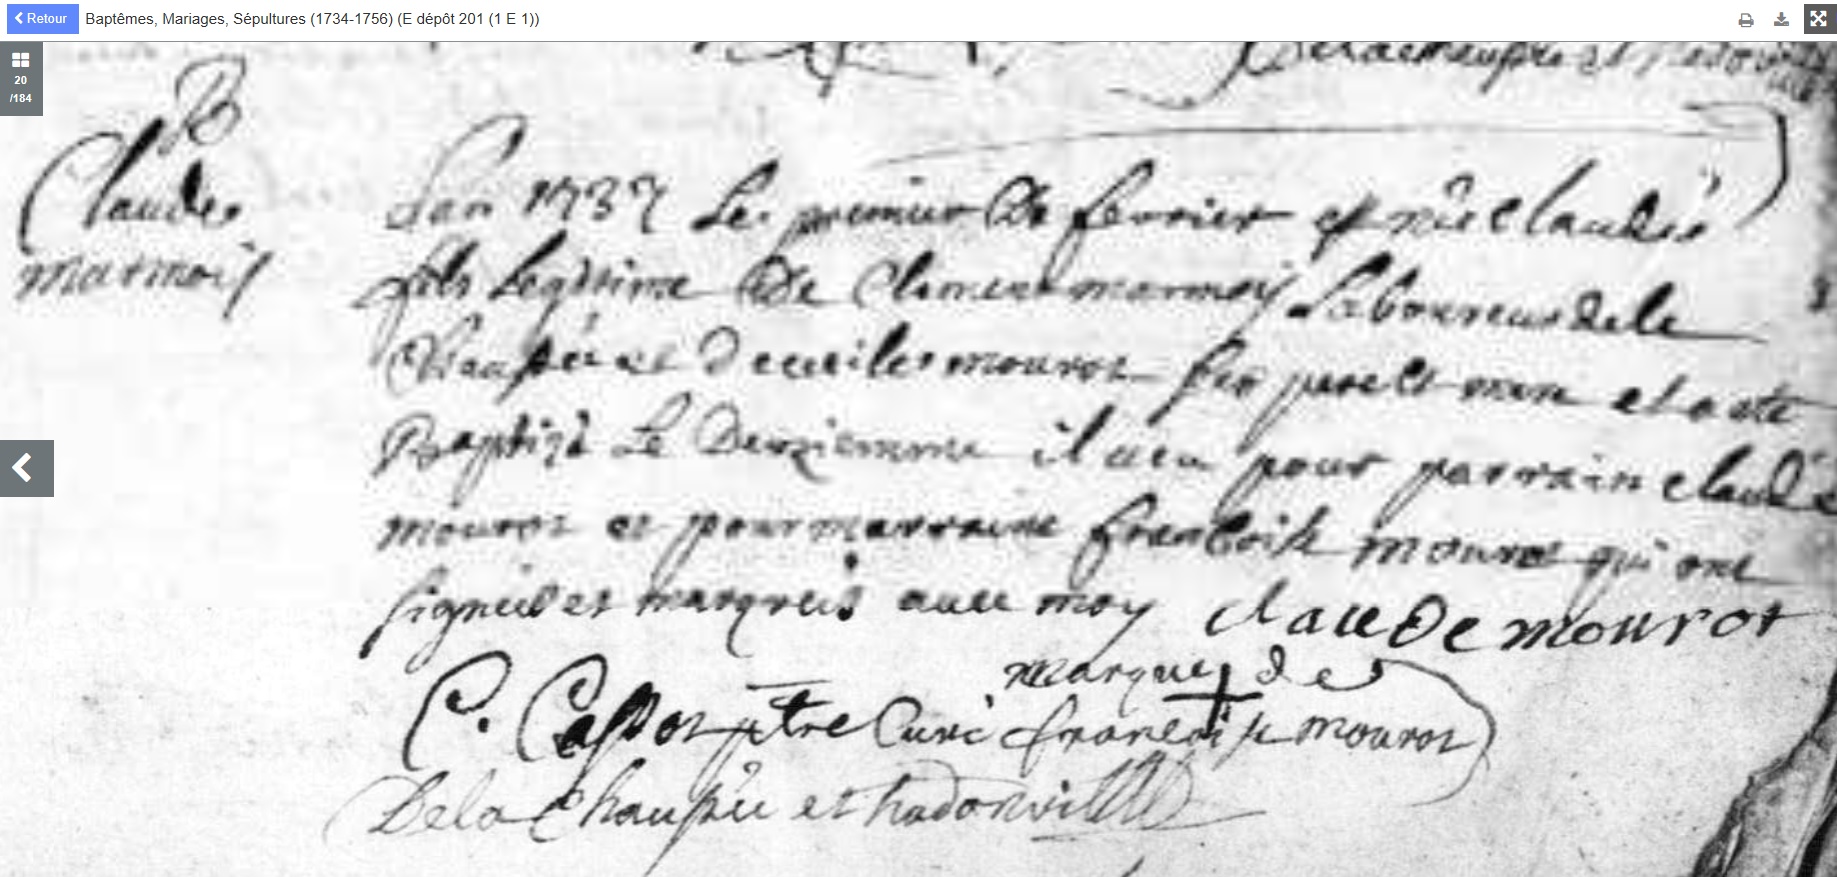 Retour Baptêmes, Mariages, Sépultures (1734-1756) (E dépôt 201 (1 E 1))
20
/184
B
Claude
marmois
Lan 1737 Le premier De fevrier est née Claude
fils legitime De Clement marmois Laboureur de la
Chaussée et De cecile mourot ses pere et mere et a esté
Baptizé Le Deuziemme il a eu pour parrain claude
mourot et pour marraine francoise mourot qui ont
signéé et marqueé avec moy claude mourot
marque de
C. ptre Curé francoise mourot
De la Chaussée et hadonville